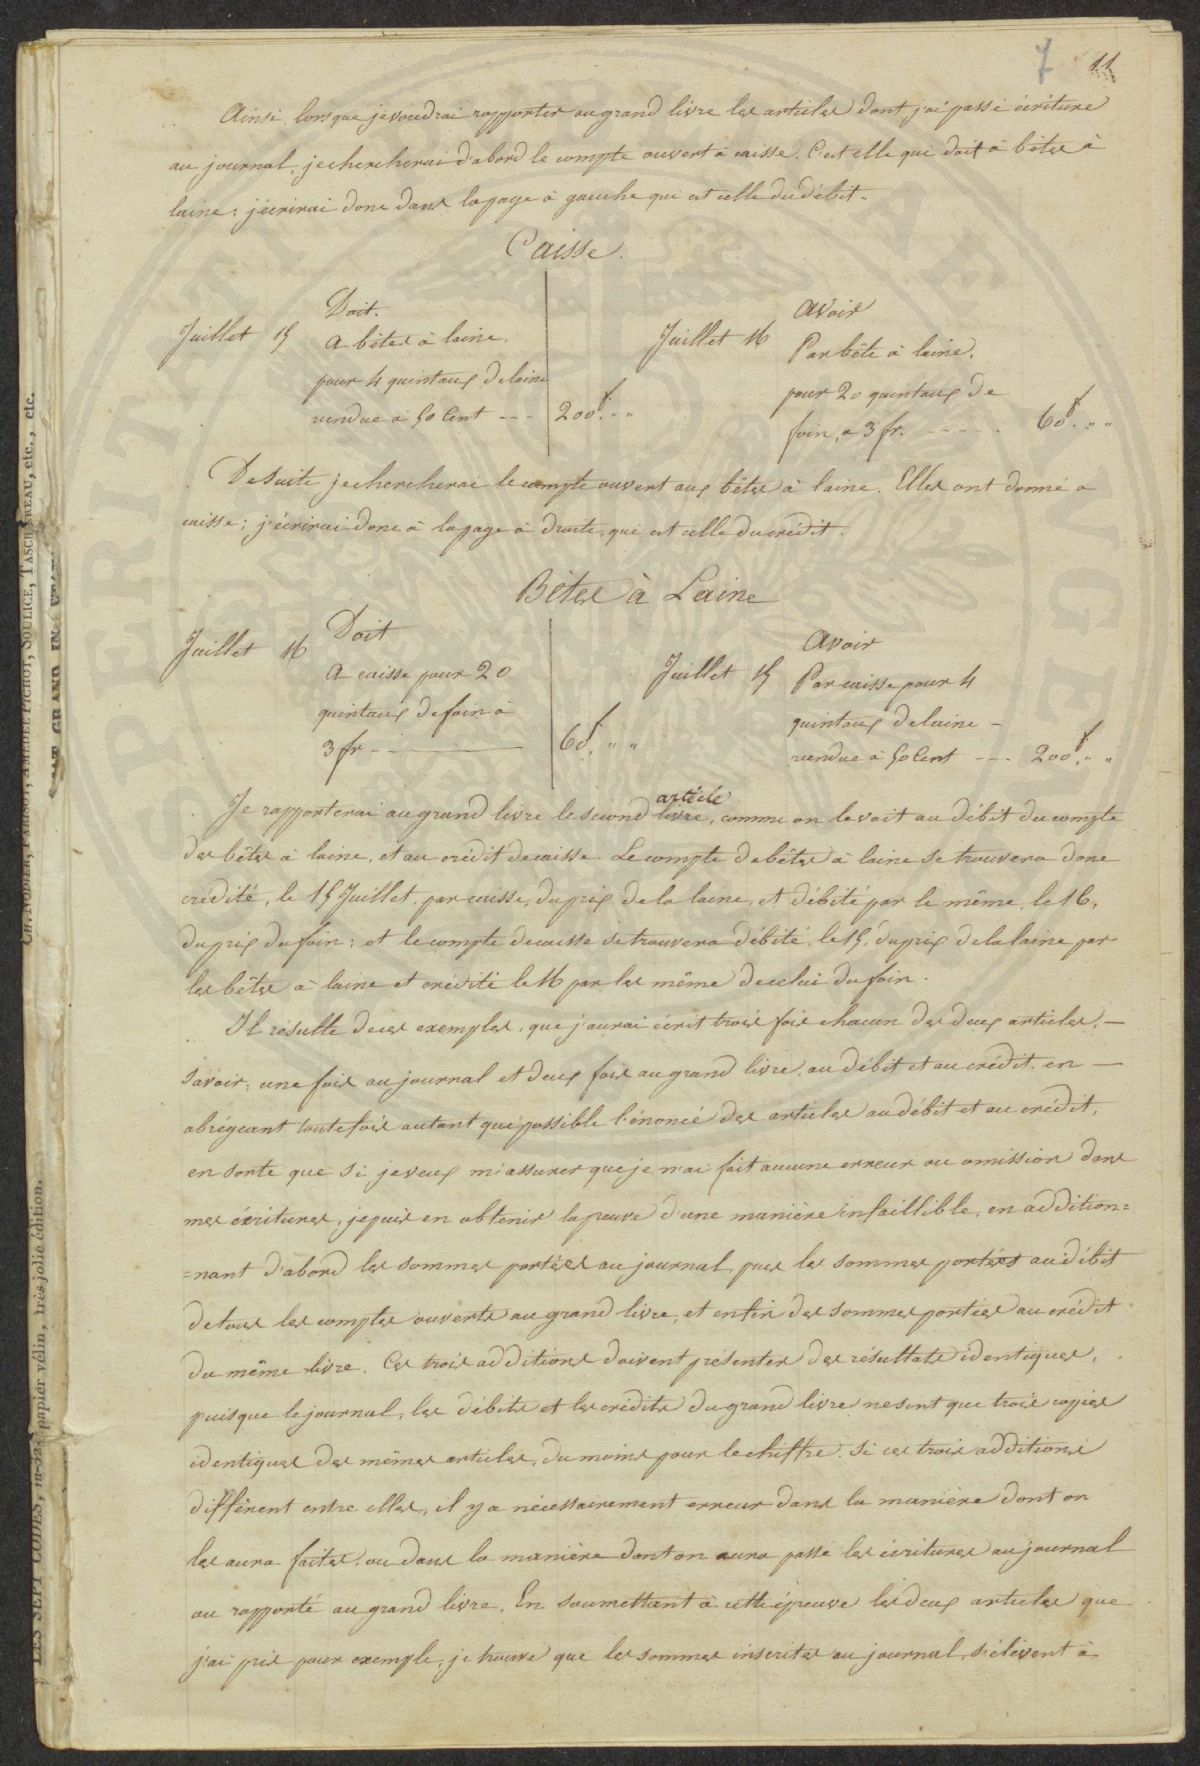 7 11
Ainsi, lorsque je voudrai rapporter au grand livre les articles dont j'ai passé écriture
au journal, je chercherai d'abord le compte ouvert à caisse. C'est elle qui doit à bêtes à
laine; j'écrirai donc dans la page à gauche qui est celle du débit.
Caisse.
Doit.
Juillet 15 A bêtes à laine,
pour 4 quintaux de laine
vendue à 50 Cent --- 200f. " "
Avoir
Juillet 16 Par bête à laine,
pour 20 quintaux de
foin, à 3 fr. ----- 60f. " "
De suite je chercherai le compte ouvert aux bêtes à laine. Elles ont donné à
caisse; j'écrirai donc à la page à droite, qui est celle du crédit.
Bêtes à Laine
Doit
Juillet 16 A caisse pour 20
quintaux de foin à
3 fr --- 60f. " "
Avoir
Juillet 15 Par caisse pour 4
quintaux de laine -
vendue à 50 Cent --- 200f. " "
article
Je rapporterai au grand livre le second livre, comme on le voit au débit du compte
des bêtes à laine, et au crédit de caisse. Le compte de bêtes à laine se trouvera donc
crédité, le 15 Juillet, par caisse, du prix de la laine, et débité par le même, le 16,
du prix du foin; et le compte de caisse se trouvera débité, le 15, du prix de la laine par
les bêtes à laine et crédité le 16 par les même de celui du foin.
Il résulte de ces exemples, que j'aurai écrit trois fois chacun des deux articles, —
savoir; une fois au journal et deux fois au grand livre, au débit et au crédit, en —
abrégeant toutefois autant que possible l'énoncé des articles au débit et au crédit,
en sorte que si je veux m'assurer que je n'ai fait aucune erreur ou omission dans
mes écritures, je puis en obtenir la preuve d'une manière infaillible, en addition=
=nant d'abord les sommes portées au journal, puis les sommes portées au débit
de tous les comptes ouverts au grand livre, et enfin des sommes portées au crédit
du même livre. Ces trois additions doivent présenter des résultats identiques,
puisque le journal, les débits et les crédits du grand livre ne sont que trois copies
identiques des mêmes articles, du moins pour le chiffre. Si ces trois additions
diffèrent entre elles, il y a nécessairement erreur dans la manière dont on
les aura faites, ou dans la manière dont on aura passé les écritures au journal
ou rapporté au grand livre. En soumettant à cette épreuve les deux articles que
j'ai pris pour exemple, je trouve que les sommes inscrites au journal, s'élèvent à
CH. NODIER, PARISOT, AMÉDÉE PICHOT, SOULICE, TASCHEREAU, etc., etc.
LES SEPT CODES, in-32, papier vélin, très-jolie édition.